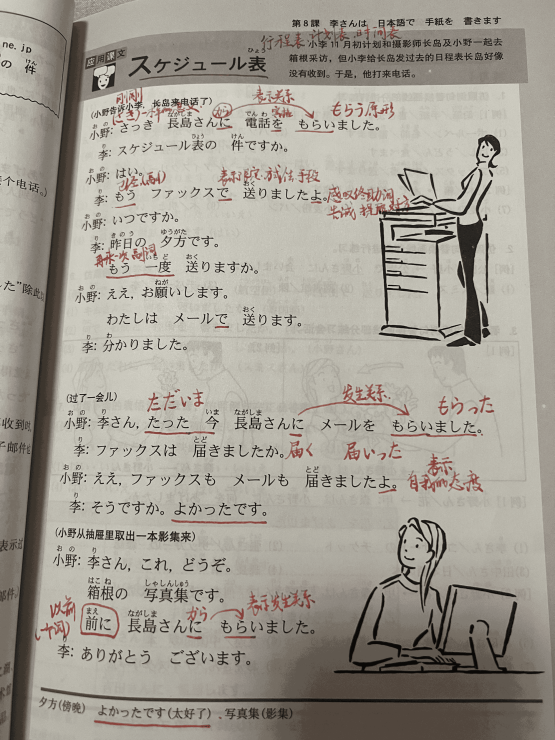 第8課 李さんは 日本語で 手紙を 書きます
行程表、计划表、时间表
ne. jp
の 件
应用课文
スケジュール表
ひょう
小李11月初计划和摄影师长岛及小野一起去
箱根采访，但小李给长岛发过去的日程表长岛好像
没有收到。于是，他打来电话。
刚刚
(小野告诉小李，长岛来电话了)
表示关系
もらう原形
から
小野: さっき 長島さんに 電話を もらいました。
李: スケジュール表の 件ですか。
小野: はい。
李: もう ファックスで 送りましたよ。
小野: いつですか。
李: 昨日の 夕方です。
再来一次 副词
もう 一度 送りますか。
小野: ええ，お願いします。
わたしは メールで 送ります。
李: 分かりました。
(过了一会儿)
ただいま
发生关系
もらった
小野: 李さん，たった 今 長島さんに メールを もらいました。
李: ファックスは 届きましたか。
届く 届いった
表示
自我的态度
小野: ええ，ファックスも メールも 届きましたよ。
李: そうですか。よかったです。
(小野从抽屉里取出一本影集来)
小野: 李さん，これ，どうぞ。
箱根の 写真集です。
以前
から
表示发生关系
前に 長島さんに もらいました。
李: ありがとう ございます。
夕方(傍晚) よかったです(太好了) 、写真集(影集)